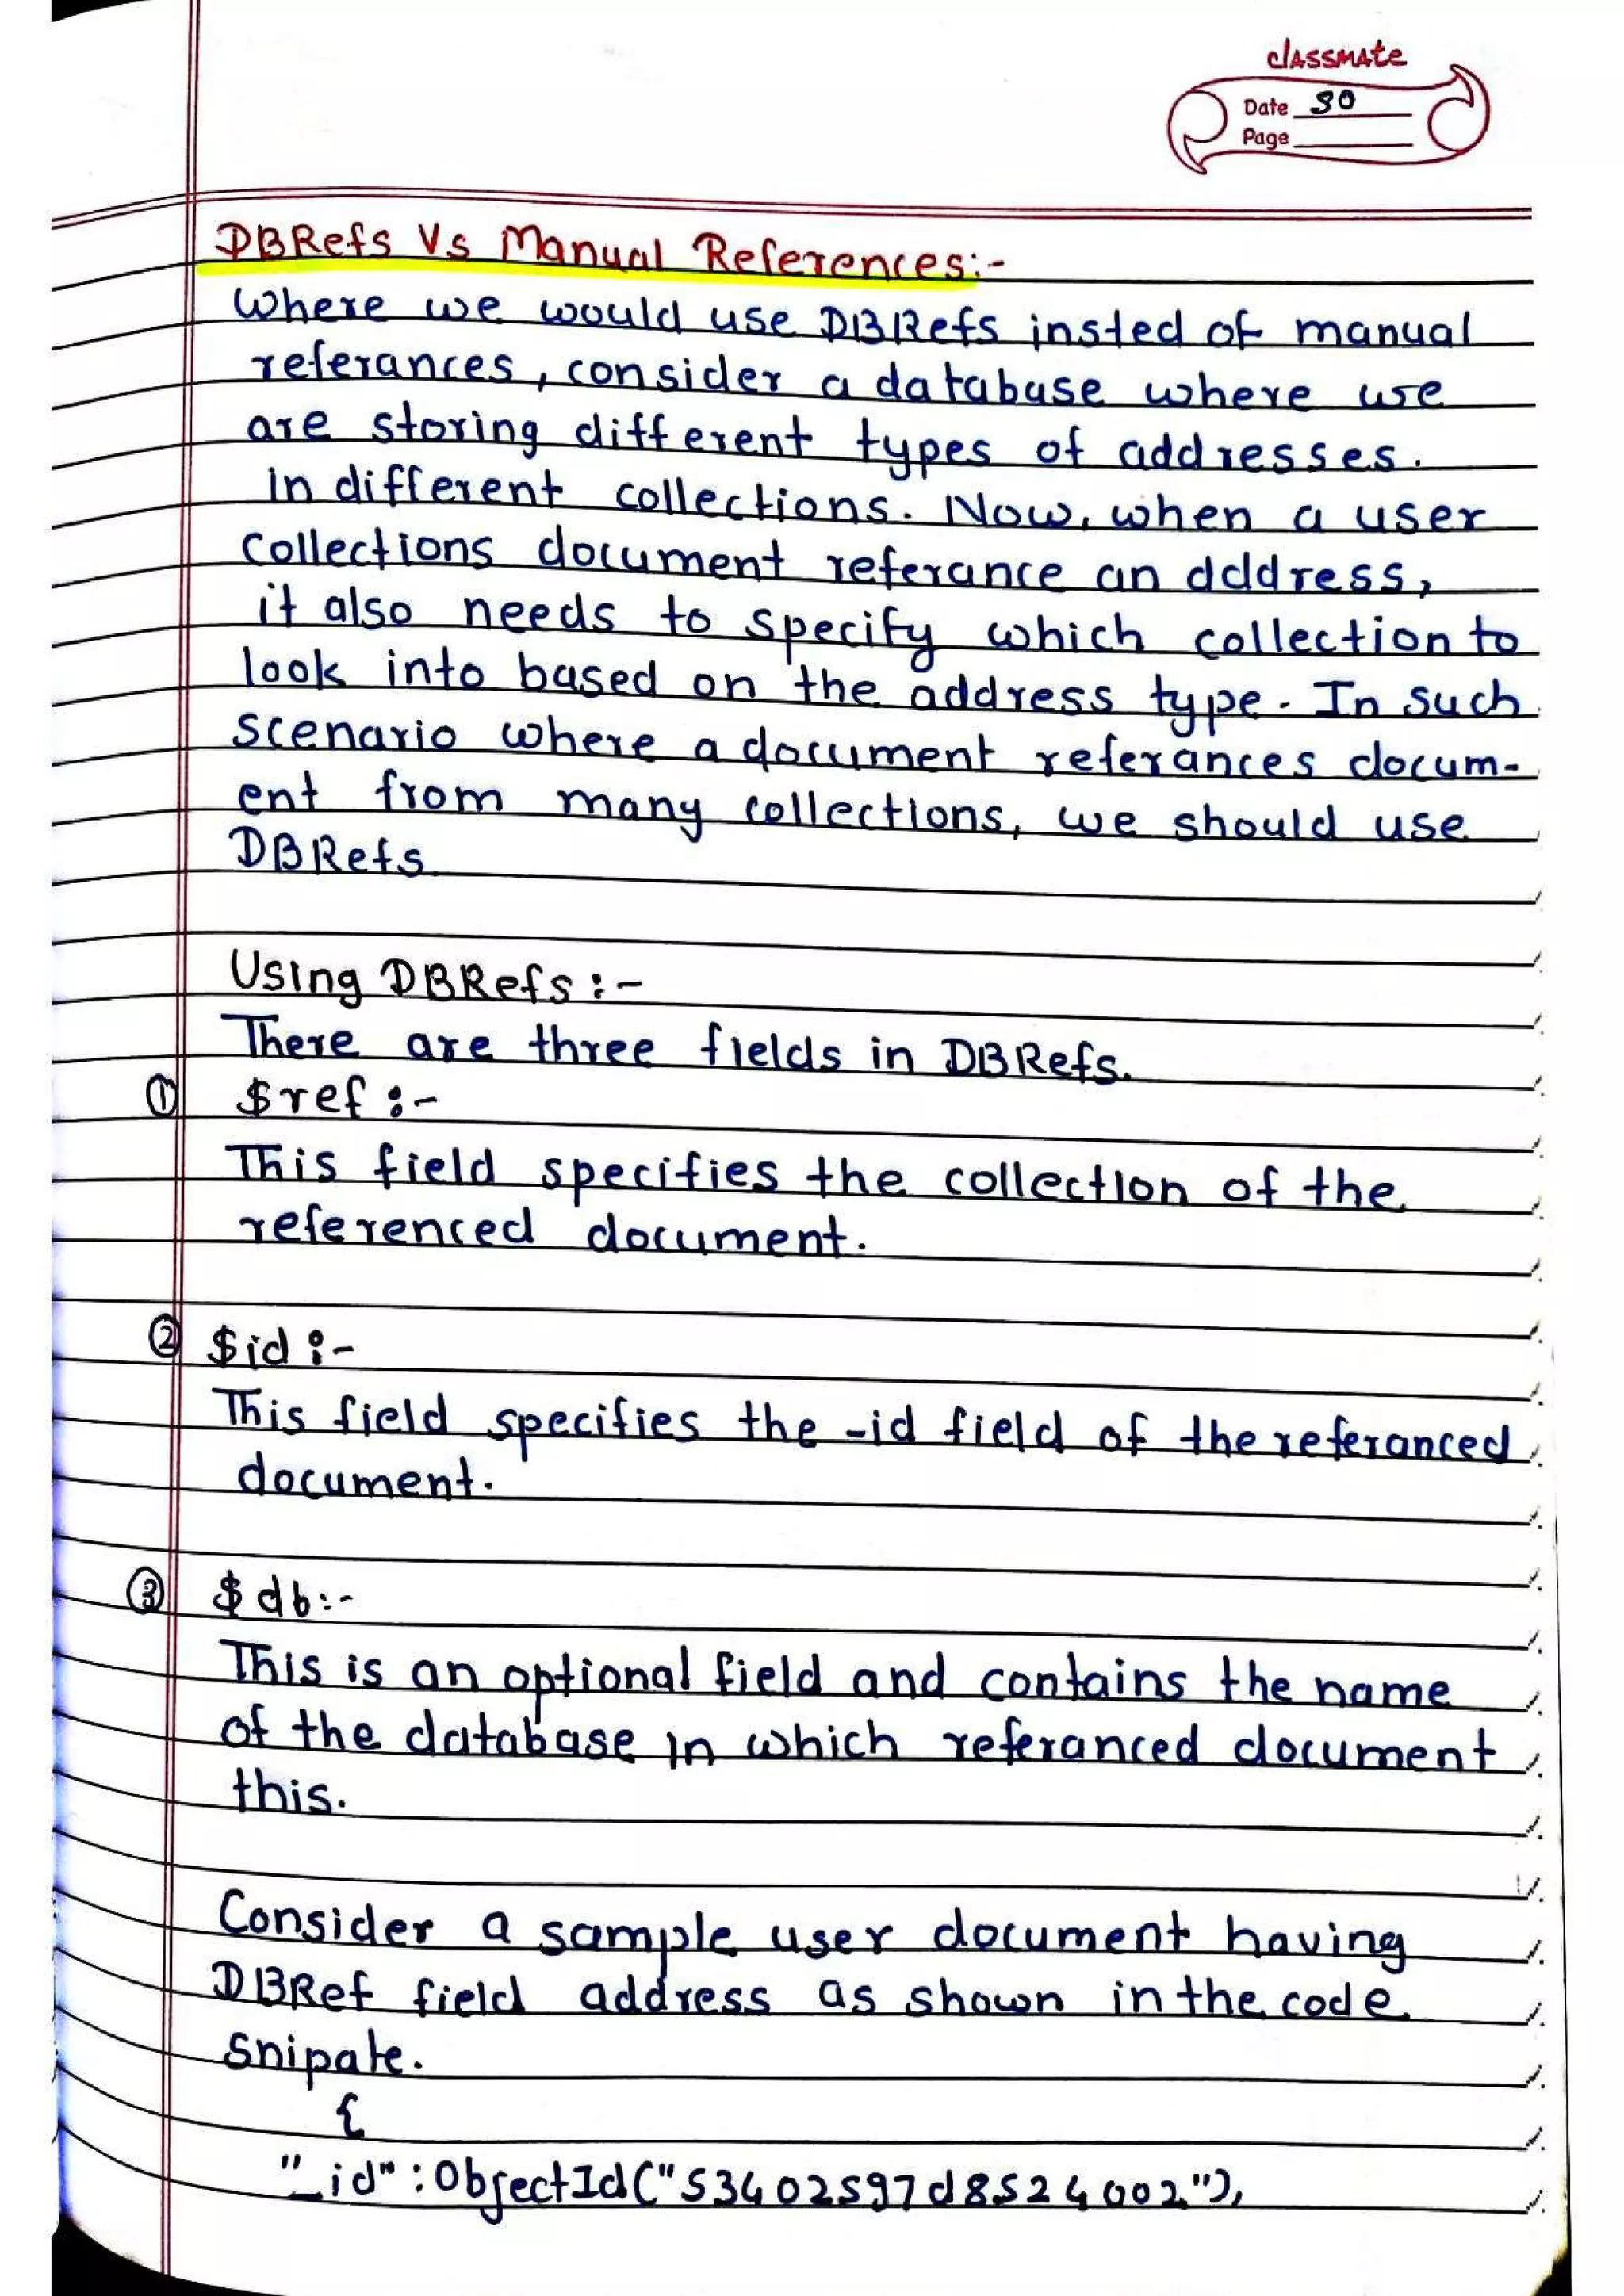 classmate
Date 30
Page
DBRefs Vs Manual References:-
Where we would use DBRefs insted of manual
referances, consider a database where we
are storing different types of addresses.
in different collections. Now, when a user
collections document referance an dddress,
it also needs to specify which collection to
look into based on the address type. In such
scenario where a document referances docum-
ent from many collections, we should use
DBRefs.
Using DBRefs :-
There are three fields in DBRefs.
① $ref :-
This field specifies the collection of the
referenced document.
② $id :-
This field specifies the -id field of the referanced
document.
③ $db:-
This is an optional field and contains the name
of the database in which referanced document
this.
Consider a sample user document having
DBRef field address as shown in the code
snipate.
{
"_id" : ObjectId("53402597d8524002"),